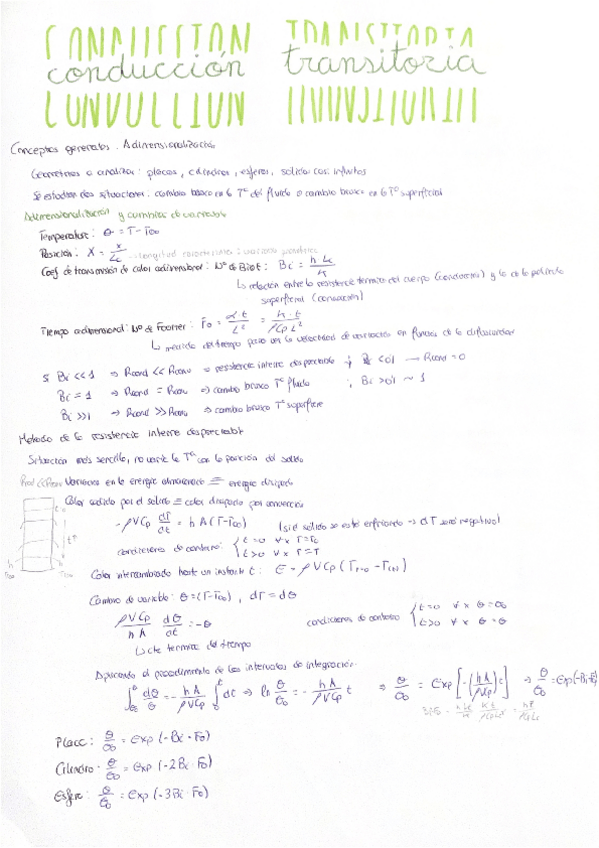 CONDUCCION TRANSITORIA
conducción transitoria
Conceptos generales. Adimensionalización
Geometrías a analizar: placas, cilindros, esferas, sólidos casi infinitos
Se estudian dos situaciones: cambio brusco en la Tª del fluido o cambio brusco en la Tª superficial
Adimensionalización y cambios de variable
Temperatura: θ = T - T∞
Posición: X = x/Lc longitud característica
Coef de transmisión de calor adimensional: Nº de Biot: Bi = h Lc / K
↳ relación entre la resistencia térmica del cuerpo (conducción) y la de la película
superficial (convección)
Tiempo adimensional: Nº de Fourier: Fo = α·t / L² = k·t / ρCp L²
↳ medida del tiempo para ver la velocidad de variación en función de la difusividad
si Bi << 1 ⇒ Rcond << Rconv ⇒ resistencia interna despreciable ; Bi < 0'1 → Rcond = 0
Bi = 1 ⇒ Rcond = Rconv ⇒ cambio brusco Tª fluido ; Bi > 0'1 ~ 1
Bi >> 1 ⇒ Rcond >> Rconv ⇒ cambio brusco Tª superficie
Método de la resistencia interna despreciable
Situación más sencilla, no varía la Tª con la posición del sólido
Rcond << Rconv Variación en la energía almacenada = energía disipada
Calor cedido por el sólido = calor disipado por convección
-ρVCp dT/dt = hA(T-T∞) (si el sólido se está enfriando → dT será negativo)
condiciones de contorno: { t=0 ∀x T=T0
t>0 ∀x T=T
Calor intercambiado hasta un instante t: E = ρVCp (Tt=0 - T(t))
h h
T∞ T∞
Cambio de variable: θ = (T-T∞), dT = dθ
ρVCp / hA dθ/dt = -θ condiciones de contorno { t=0 ∀x θ=θ0
t>0 ∀x θ=θ
↳ cte térmica del tiempo
Aplicando el procedimiento de los intervalos de integración:
∫ dθ/θ = - hA/ρVCp ∫ dt ⇒ ln θ/θ0 = - hA/ρVCp t ⇒ θ/θ0 = exp[-(hA/ρVCp)t] → θ/θ0 = exp(-Bi·Fo)
Placa: θ/θ0 = exp(-Bi·Fo)
Cilindro: θ/θ0 = exp(-2Bi·Fo)
Esfera: θ/θ0 = exp(-3Bi·Fo)